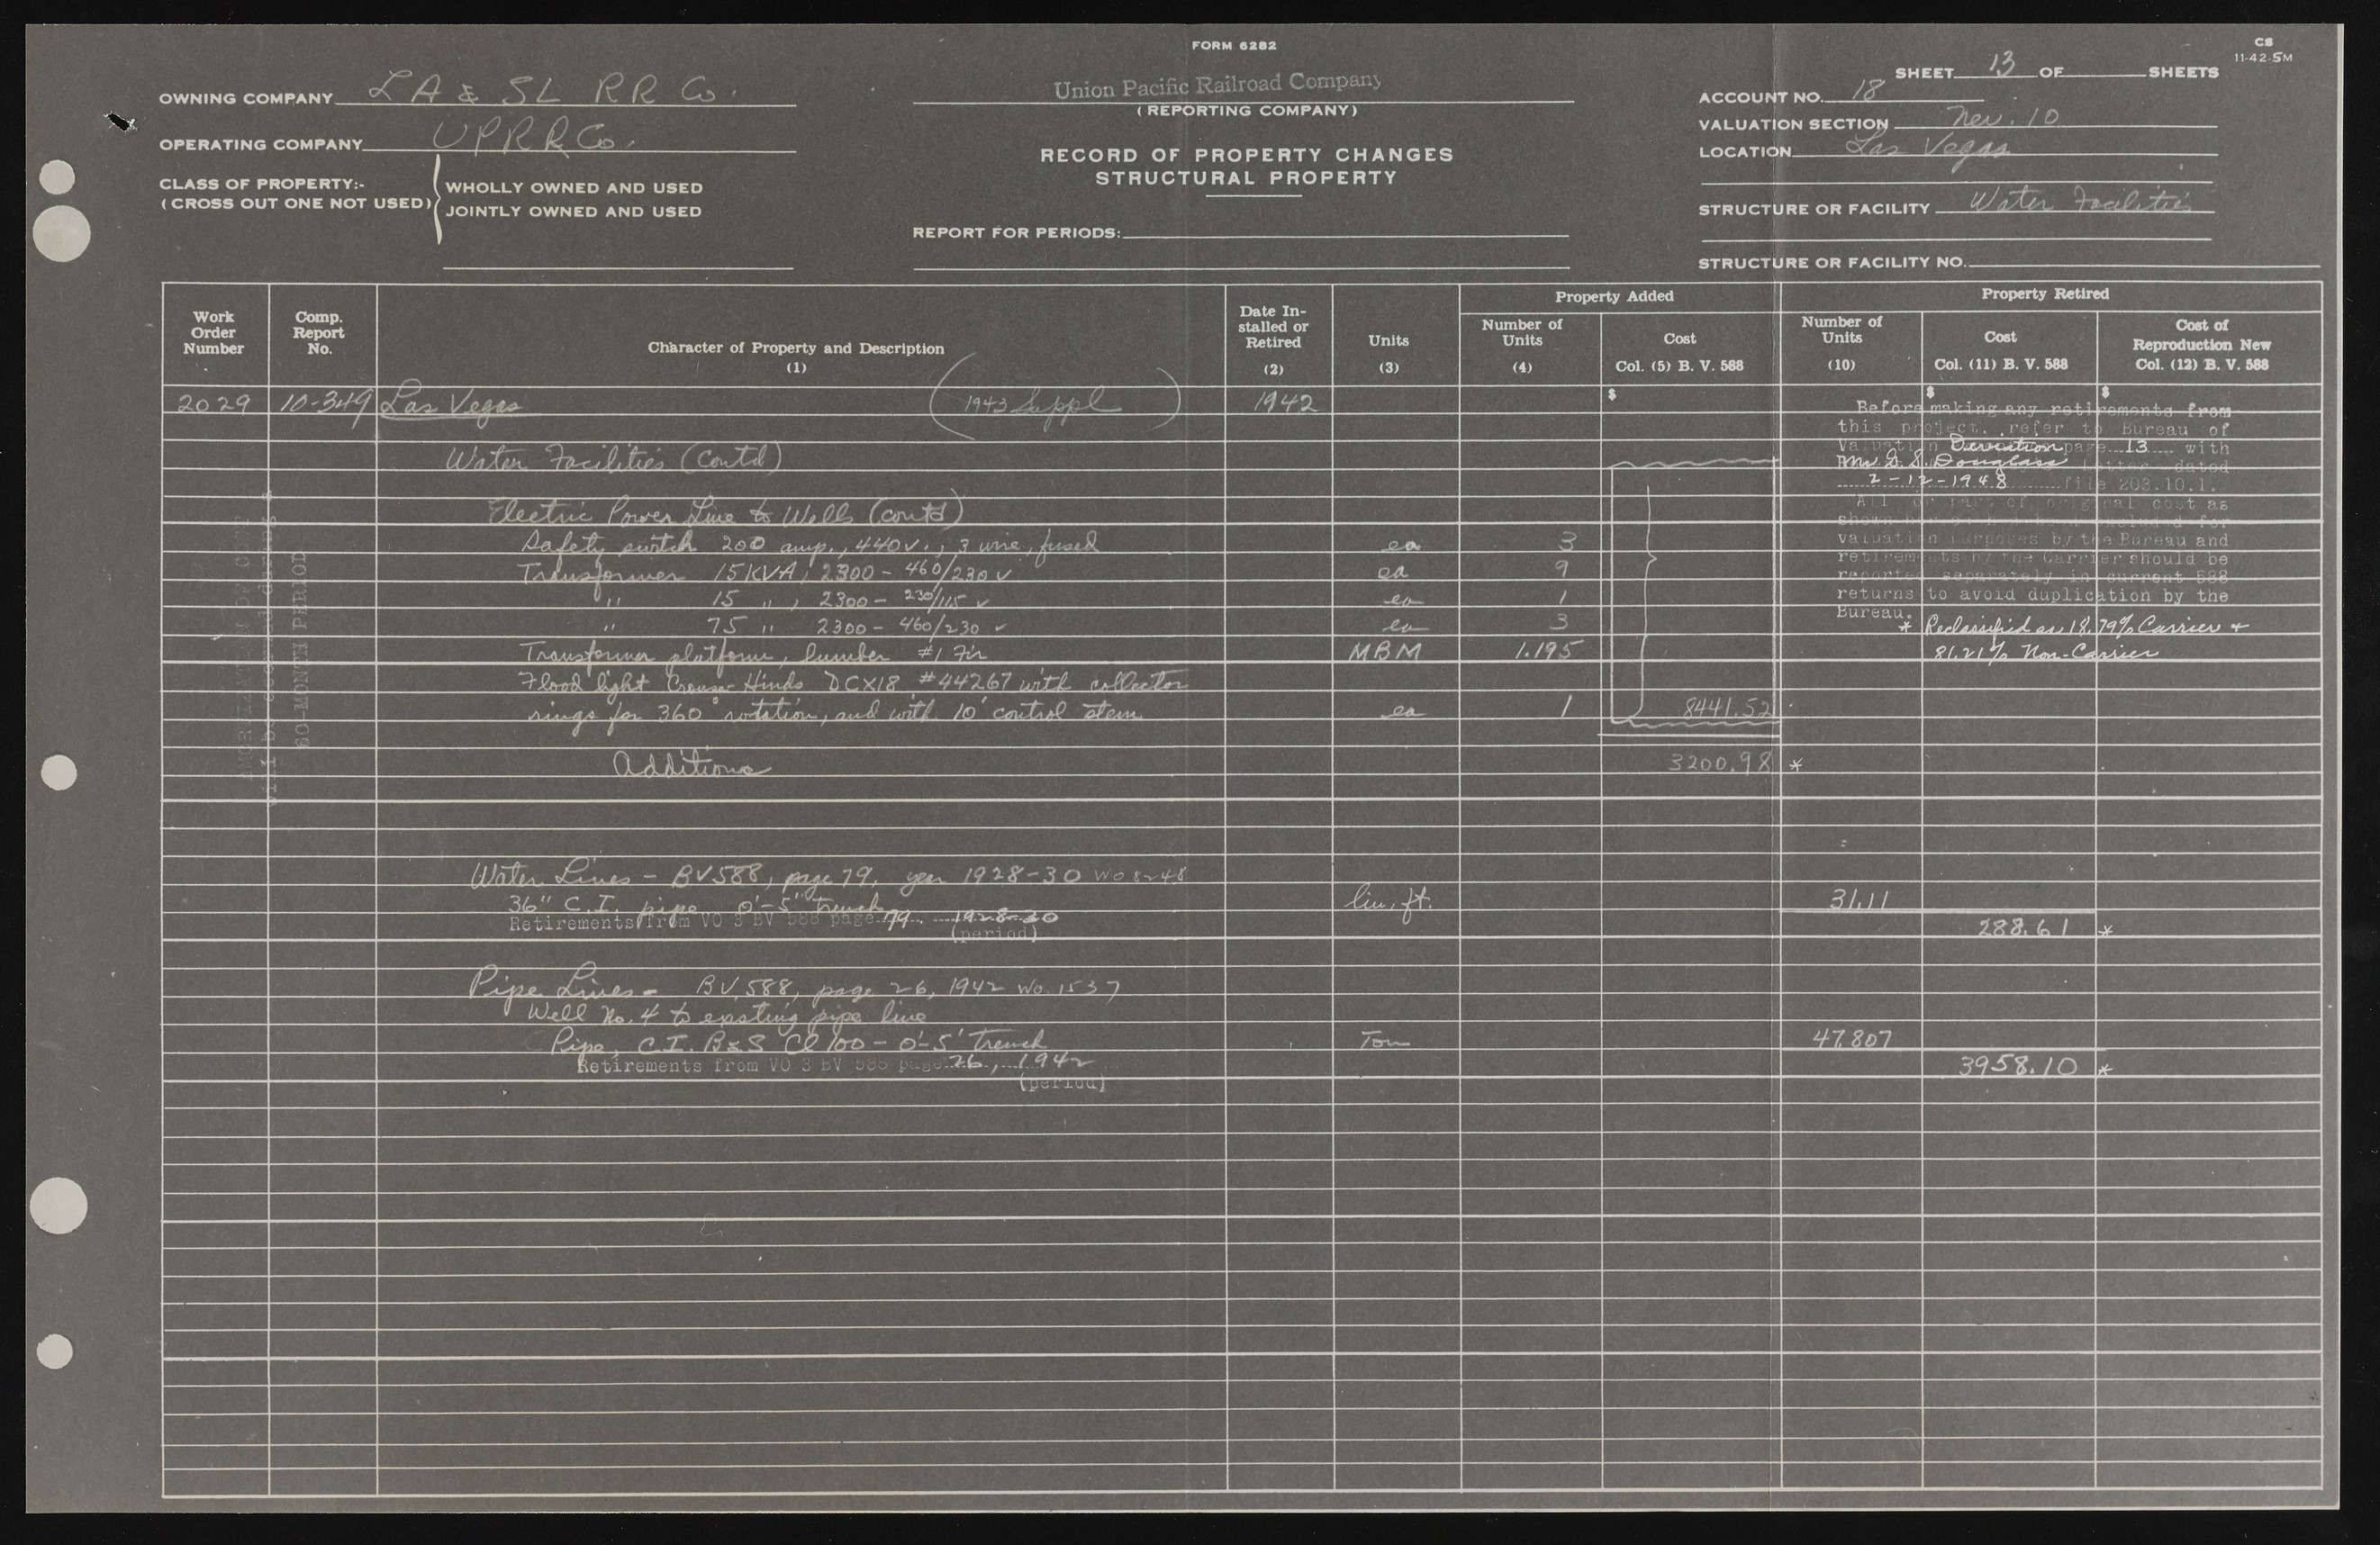 FORM 6282
CS
11-42-5M
SHEET 13 OF SHEETS
OWNING COMPANY LA & SL RR Co.
Union Pacific Railroad Company
(REPORTING COMPANY)
ACCOUNT NO. 18
OPERATING COMPANY UPRRCo.
VALUATION SECTION Nev. 10
RECORD OF PROPERTY CHANGES
STRUCTURAL PROPERTY
LOCATION Las Vegas
CLASS OF PROPERTY:-
(CROSS OUT ONE NOT USED)
WHOLLY OWNED AND USED
JOINTLY OWNED AND USED
STRUCTURE OR FACILITY Water Facilities
REPORT FOR PERIODS:
STRUCTURE OR FACILITY NO.
Work Order Number
Comp. Report No.
Character of Property and Description
(1)
Date Installed or Retired
(2)
Units
(3)
Property Added
Number of Units
(4)
Cost
Col. (5) B. V. 588
Property Retired
Number of Units
(10)
Cost
Col. (11) B. V. 588
Cost of Reproduction New
Col. (12) B. V. 588
2029 10-349 Las Vegas (1943 Suppl) 1942 $ $ $
Before making any retirements from
this project, refer to Bureau of
Valuation Deviation page 13 with
Mr. D. S. Douglass letter dated
2-12-1948 file 203.10.1.
All or part of original cost as
valuation purposes by the Bureau and
retirements by the Carrier should be
reported separately in current 588
returns to avoid duplication by the
Bureau.
* Reclassified as 18.79% Carrier +
81.21% Non-Carrier
Water Facilities (Contd)
Electric Power Line to Wells (contd)
Safety switch 200 amp., 440v., 3 wire, fused ea 3
Transformer 15KVA, 2300 - 460/230 v ea 9
" 15 ", 2300 - 230/115 v ea 1
" 75 " 2300 - 460/230 v ea 3
Transformer platform, lumber #1 Fir MBM 1.195
Flood light Crouse-Hinds DCX18 #44267 with collector
rings for 360° rotation, and with 10' control stem ea 1 8441.52
Additions 3200.98 *
60-MONTH PERIOD
Water Lines - BV588, page 79, year 1928-30 WO 8248
36" C.I. pipe 0'-5' trench lin. ft. 31.11
Retirements from VO 3 BV 588 page 79 1928-30
(period)
288.61 *
Pipe Lines - BV 588, page 26, 1942 Wo. 1537
Well No. 4 to existing pipe line
Pipe, C.I. B&S Cl 100 - 0'-5' trench Ton 47.807
Retirements from VO 3 BV 588 page 26, 1942
(period)
3958.10 *